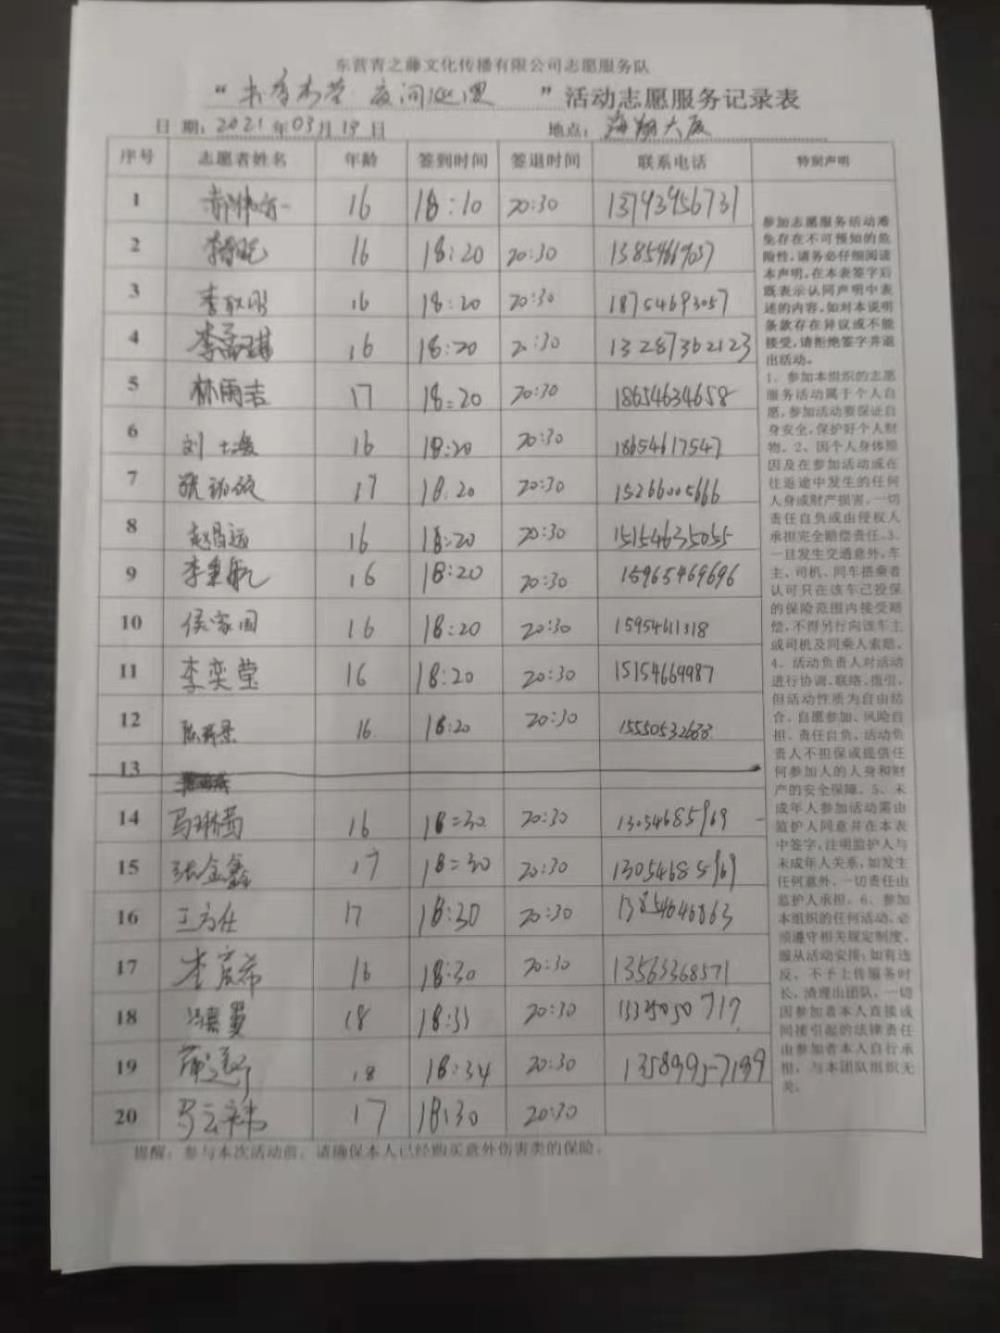 东营青之藤文化传播有限公司志愿服务队
“书香东营 夜间 ”活动志愿服务记录表
日 期：2021年03月19日 地点：海翔大厦
序号 志愿者姓名 年龄 签到时间 签退时间 联系电话 特别声明
1 16 18:10 20:30 13793956731
2 16 18:20 20:30
3 16 18:20 20:30 18754693057
4 李孟琪 16 18:20 20:30 13287362123
5 林雨洁 17 18:20 20:30 18654634658
6 刘 16 18:20 20:30 18654617547
7 17 18:20 20:30 15266005666
8 赵昌远 16 18:20 20:30 15154635055
9 李秉航 16 18:20 20:30 15965469696
10 侯家国 16 18:20 20:30
11 李奕莹 16 18:20 20:30 15154669987
12 16 18:20 20:30
13
14 马琳茜 16 18:30 20:30 13054685969
15 张金鑫 17 18:30 20:30 13054685969
16 王方仕 17 18:30 20:30 13854646863
17 李 希 16 18:30 20:30 13563368571
18 18 18:33 20:30
19 18 18:34 20:30 13589957199
20 17 18:30 20:30
参加志愿服务活动难
免存在不可预知的危
险性，请务必仔细阅读
本声明，在本表签字后
既表示认同声明中表
述的内容，如对本说明
条款存在异议或不能
接受，请拒绝签字并退
出活动。
1、参加本组织的志愿
服务活动属于个人自
愿，参加活动要保证自
身安全，保护好个人财
物。2、因个人身体原
因及在参加活动或在
往返途中发生的任何
人身或财产损害，一切
责任自负或由侵权人
承担完全赔偿责任。3、
一旦发生交通意外，车
主、司机、同车搭乘者
认可只在该车已投保
的保险范围内接受赔
偿，不得另行向该车主
或司机及同乘人索赔。
4、活动负责人对活动
进行协调、联络、指引，
但活动性质为自由结
合、自愿参加、风险自
担、责任自负。活动负
责人不担保或提供任
何参加人的人身和财
产的安全保障。5、未
成年人参加活动需由
监护人同意并在本表
中签字，注明监护人与
未成年人关系，如发生
任何意外，一切责任由
监护人承担。6、参加
本组织的任何活动，必
须遵守相关规定制度、
服从活动安排；如有违
反，不予上传服务时
长，清理出团队，一切
因参加者本人直接或
间接引起的法律责任
由参加者本人自行承
担，与本团队组织无
关。
提醒：参与本次活动前，请确保本人已经购买意外伤害类的保险。